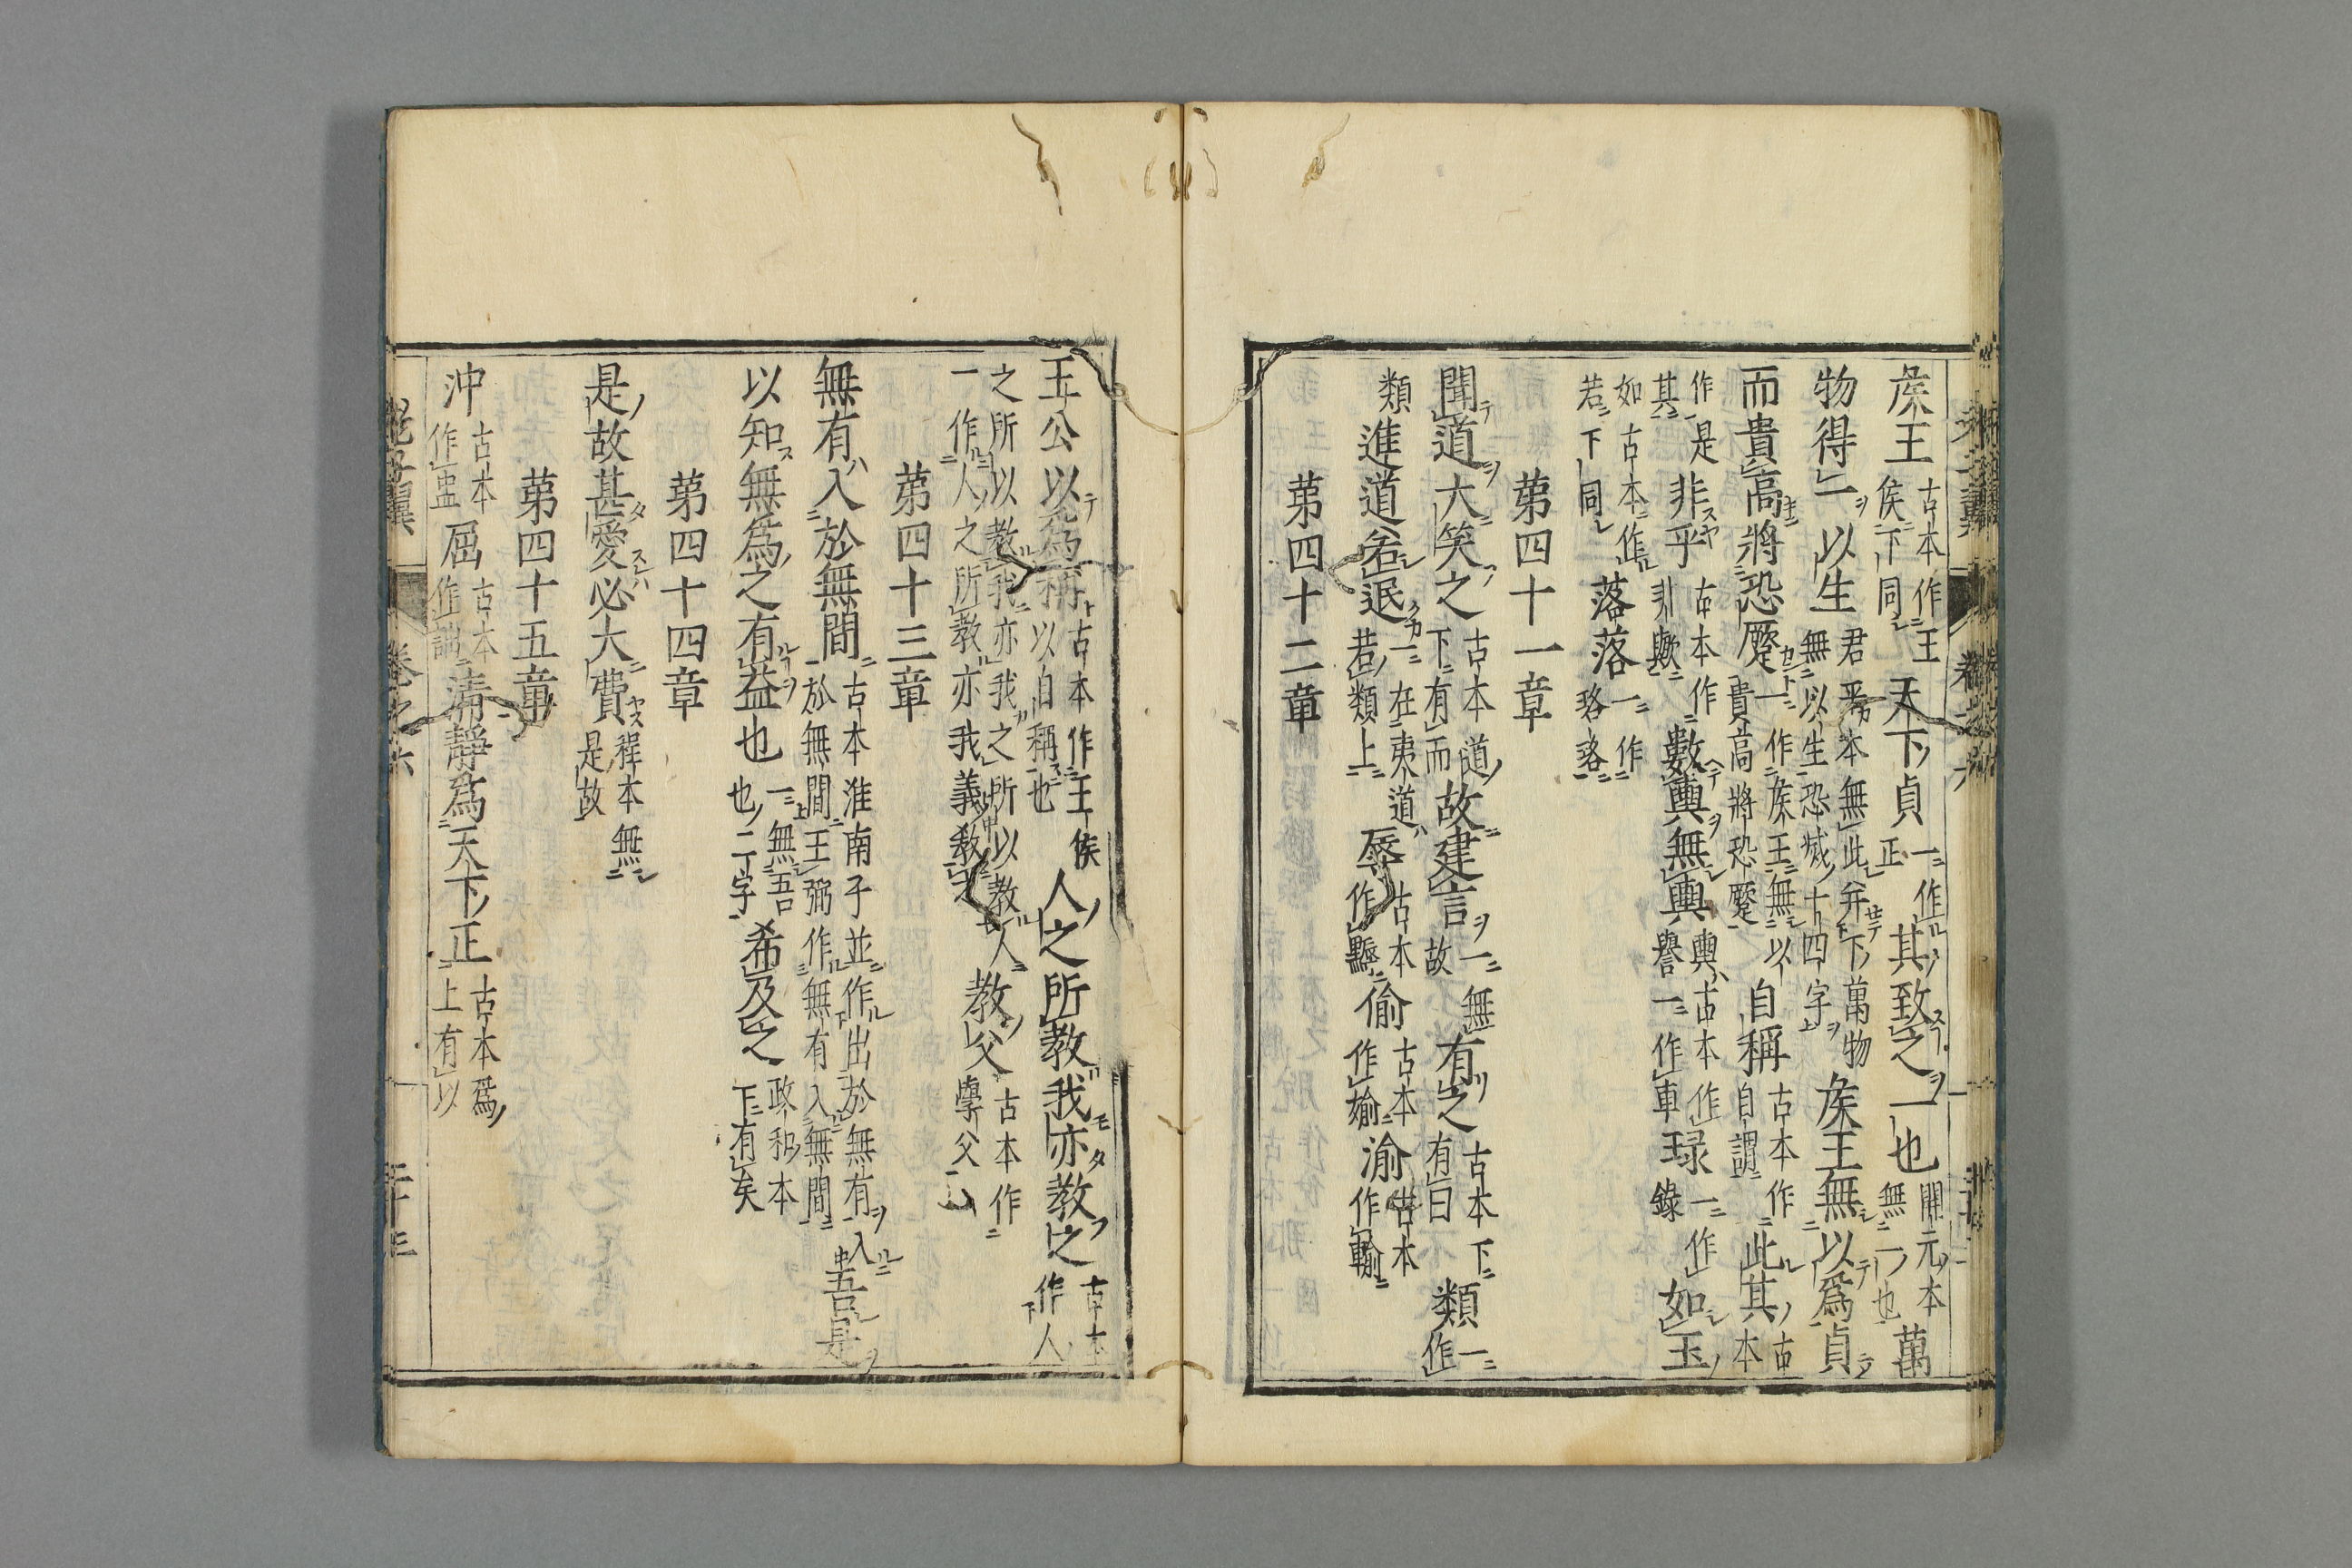 矦王古本作王侯下同天下貞一作正其致之一也開元本無一也萬
物得一以生君平本無此并下萬物無以生恐滅十四字矦王無以爲貞
而貴高將恐蹷一作矦王無以貴高將恐蹷自稱古本作自謂此其古本
作是其非乎古本作非歟數輿無輿輿古本作譽一作車琭一作錄如玉
如古本作若下同落落一作珞珞
第四十一章
聞道大笑之古本道下有而故建言一無故有之古本下有曰類一作
類進道若退一在夷道若類上辱古本作䵴偷古本作媮渝古本作輸
第四十二章
王公以爲稱古本作王侯以自稱也人之所教我亦教之古本作人
之所以教我亦我之所以教人一作人之所教亦我義教之教父古本作學父
第四十三章
無有入於無間古本淮南子並作出於無有入於無間王弼作無有入無間吾是
以知無爲之有益也一無吾也二字希及之政和本下有矣
第四十四章
是故甚愛必大費稈本無是故
第四十五章
沖古本作盅屈古本作詘清靜爲天下正古本爲上有以
老子翼
卷之六
三十三